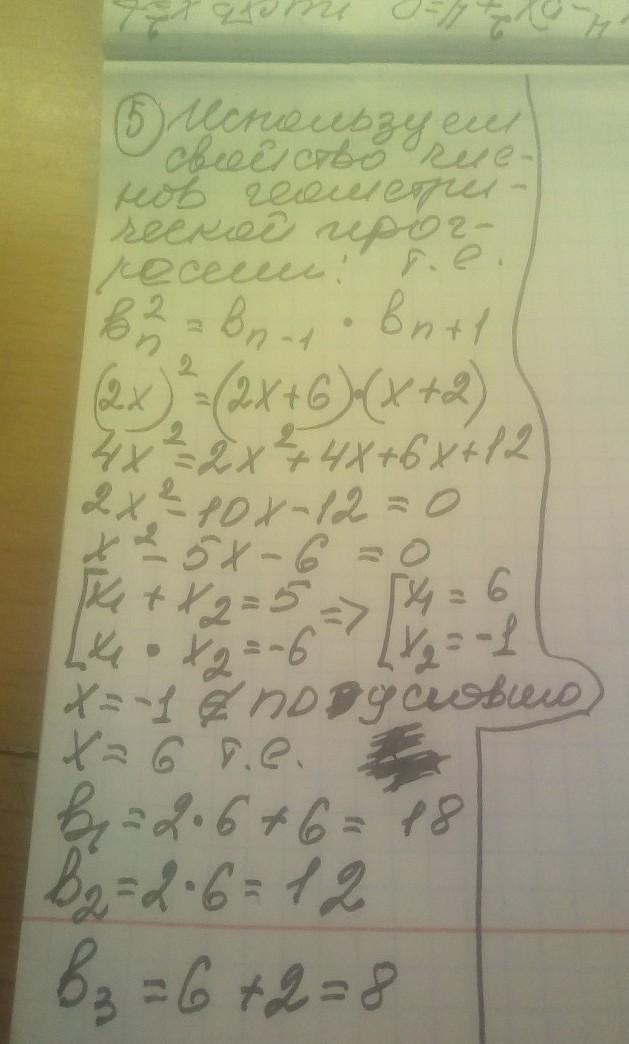 ⑤ Используем
свойство чле-
нов геометри-
ческой прог-
рессии: т.е.
bₙ² = bₙ₋₁ · bₙ₊₁
(2x)² = (2x+6)·(x+2)
4x² = 2x² + 4x + 6x + 12
2x² - 10x - 12 = 0
x² - 5x - 6 = 0
[x₁ + x₂ = 5 => [x₁ = 6
[x₁ · x₂ = -6 [x₂ = -1
x = -1 ∉ по условию
x = 6 т.е.
b₁ = 2·6 + 6 = 18
b₂ = 2·6 = 12
b₃ = 6 + 2 = 8